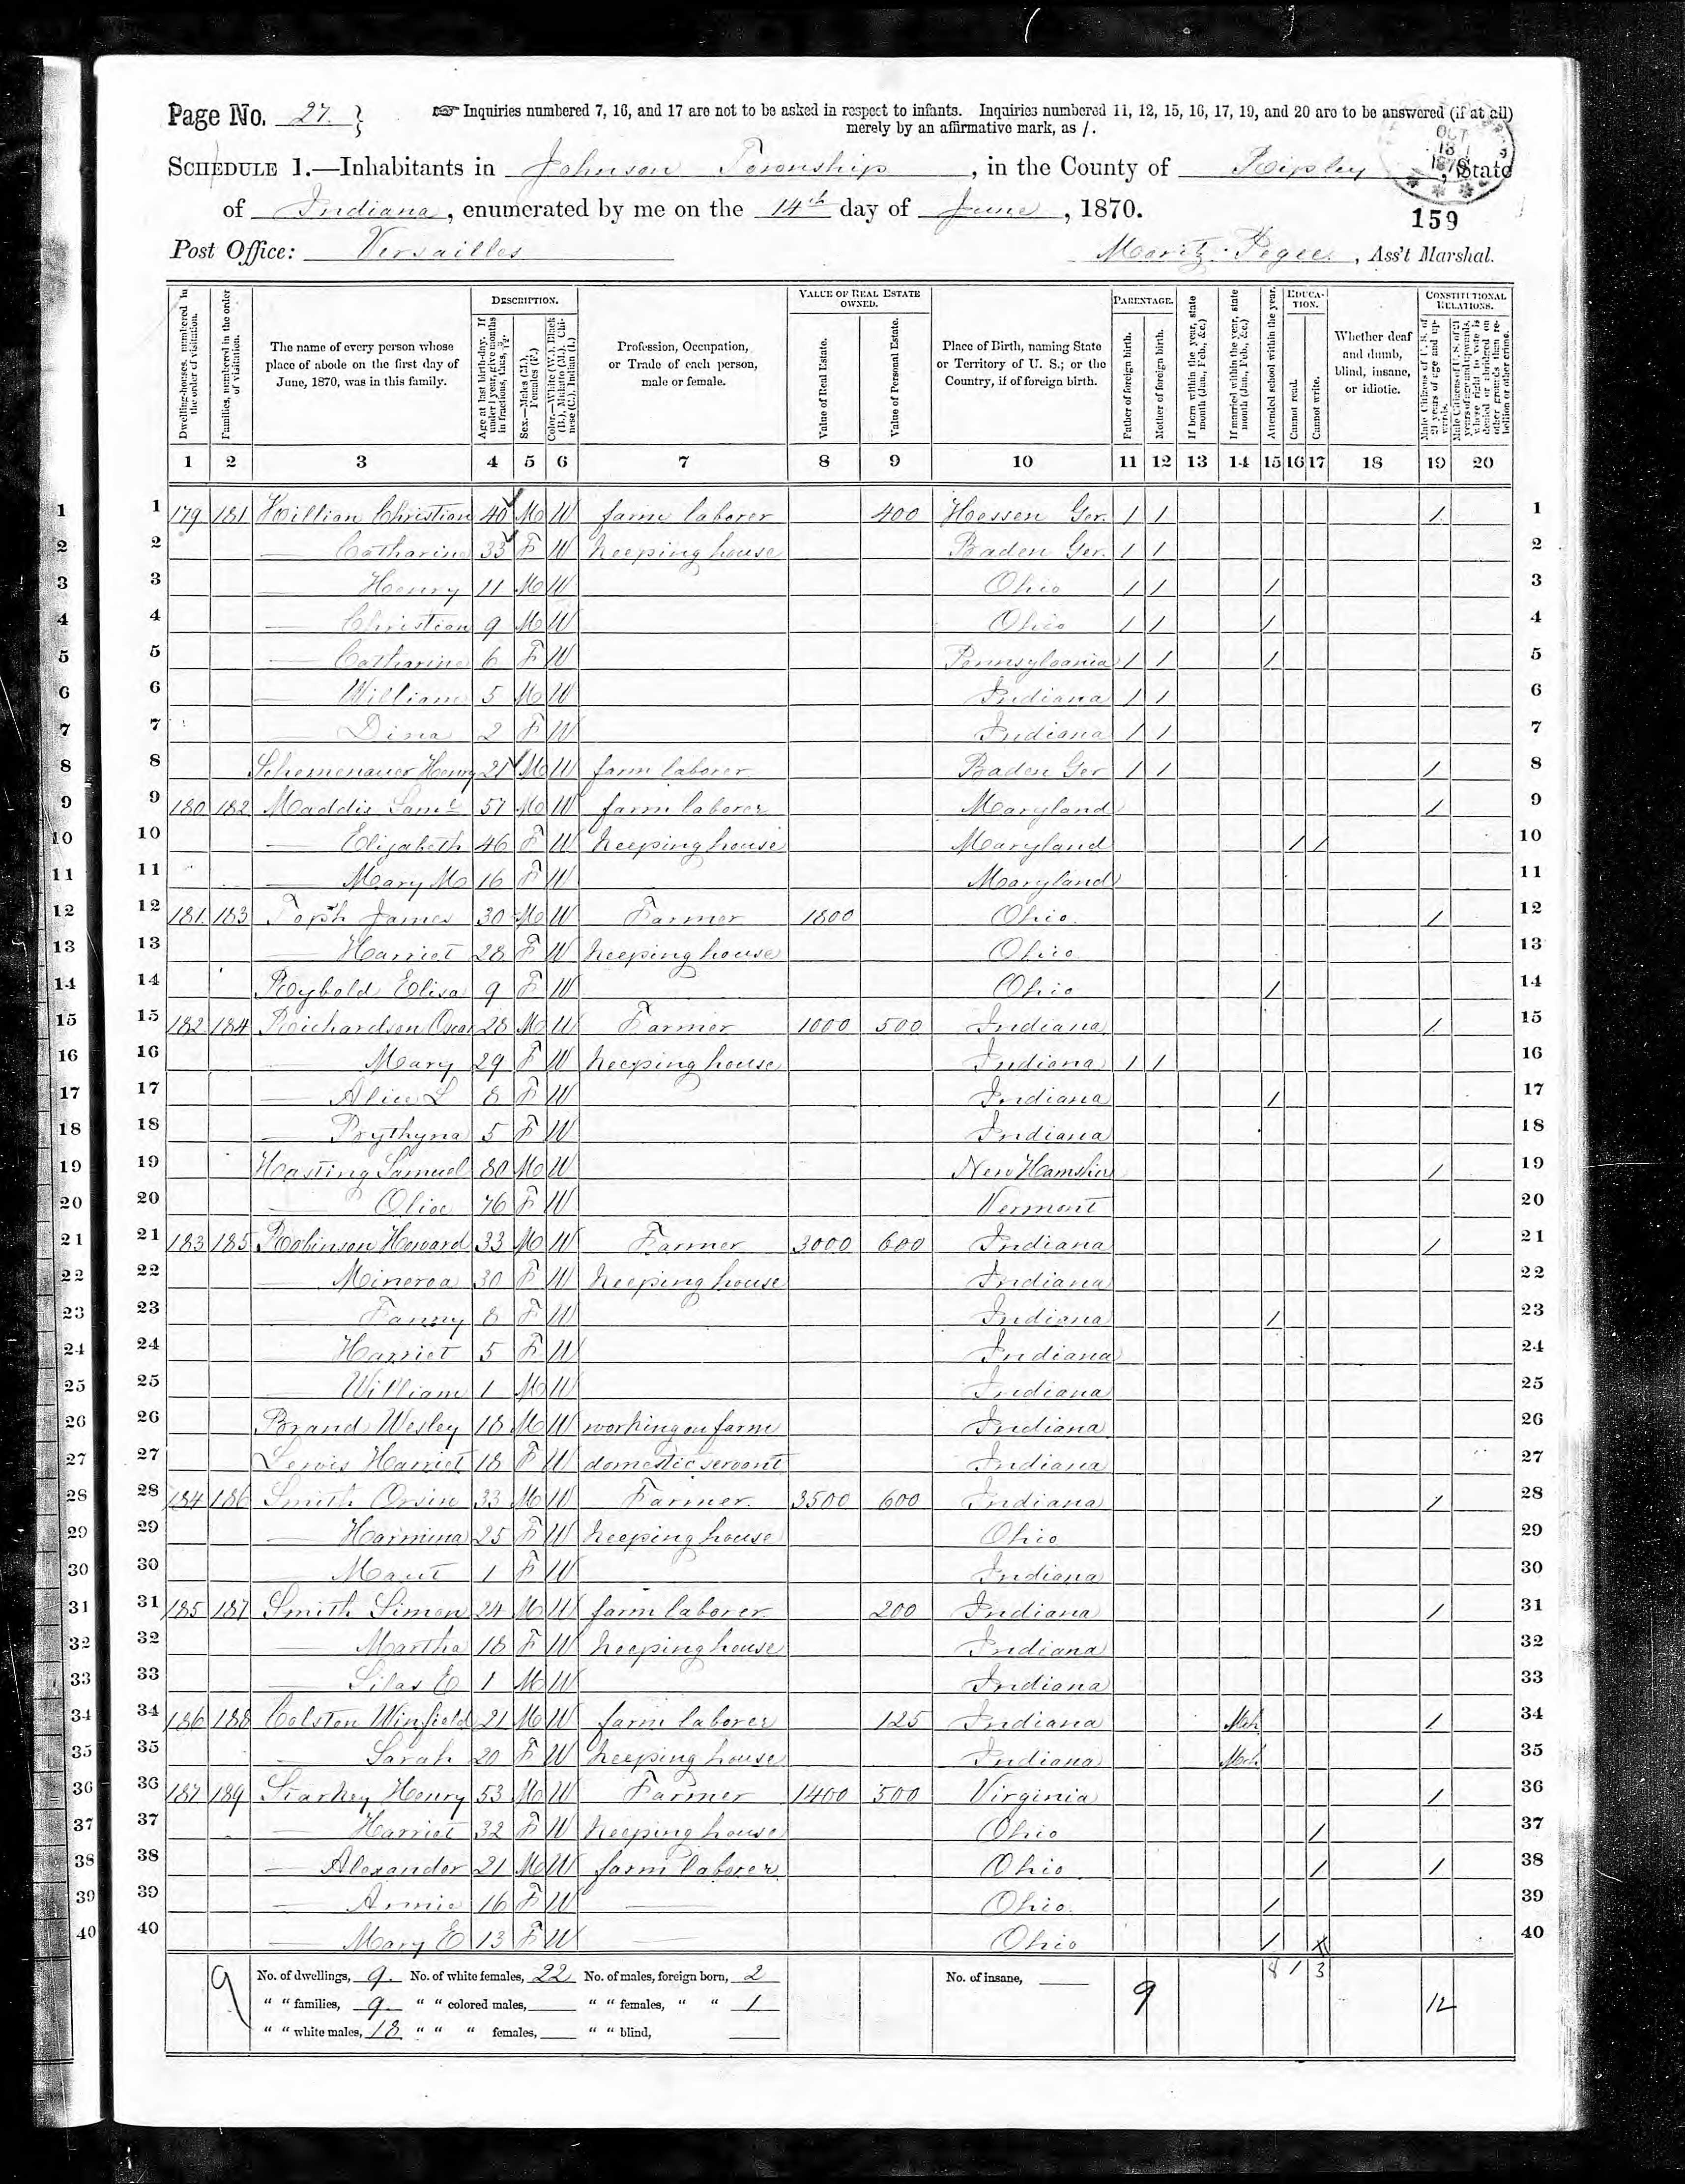 Page No. 27 } ☞ Inquiries numbered 7, 16, and 17 are not to be asked in respect to infants. Inquiries numbered 11, 12, 15, 16, 17, 19, and 20 are to be answered (if at all)
merely by an affirmative mark, as /.
OCT 18 1
SCHEDULE 1.—Inhabitants in Johnson Township, in the County of Ripley, State
of Indiana, enumerated by me on the 14th day of June, 1870.
159
Post Office: Versailles Moritz, Ass't Marshal.
DESCRIPTION. VALUE OF REAL ESTATE OWNED. PARENTAGE. EDUCATION. CONSTITUTIONAL RELATIONS.
Dwelling-houses, numbered in the order of visitation.
Families, numbered in the order of visitation.
The name of every person whose place of abode on the first day of June, 1870, was in this family.
Age at last birth-day. If under 1 year, give months in fractions, thus, 3/12.
Sex.—Males (M.), Females (F.)
Color.—White (W.), Black (B.), Mulatto (M.), Chinese (C.), Indian (I.)
Profession, Occupation, or Trade of each person, male or female.
Value of Real Estate.
Value of Personal Estate.
Place of Birth, naming State or Territory of U. S.; or the Country, if of foreign birth.
Father of foreign birth.
Mother of foreign birth.
If born within the year, state month (Jan., Feb., &c.)
If married within the year, state month (Jan., Feb., &c.)
Attended school within the year.
Cannot read.
Cannot write.
Whether deaf and dumb, blind, insane, or idiotic.
Male Citizens of U. S. of 21 years of age and upwards.
Male Citizens of U. S. of 21 years of age and upwards, whose right to vote is denied or abridged on other grounds than rebellion or other crime.
1 2 3 4 5 6 7 8 9 10 11 12 13 14 15 16 17 18 19 20
1 1 179 181 Killian Christian 40 M W farm laborer 400 Hessen Ger. / / / 1
2 2 — Catharine 33 F W keeping house Baden Ger. / / 2
3 3 — Henry 11 M W Ohio / / / 3
4 4 — Christian 9 M W Ohio / / / 4
5 5 — Catharine 6 F W Pennsylvania / / / 5
6 6 — William 5 M W Indiana / / 6
7 7 — Dina 2 F W Indiana / / 7
8 8 Schemenauer Henry 21 M W farm laborer Baden Ger / / / 8
9 9 180 182 Maddix Saml 57 M W farm laborer Maryland / 9
10 10 — Elizabeth 46 F W keeping house Maryland / / 10
11 11 — Mary M 16 F W Maryland 11
12 12 181 183 Toph James 30 M W Farmer 1800 Ohio / 12
13 13 — Harriet 28 F W keeping house Ohio 13
14 14 Rybold Elisa 9 F W Ohio / 14
15 15 182 184 Richardson Oscar 28 M W Farmer 1000 500 Indiana / 15
16 16 — Mary 29 F W keeping house Indiana / / 16
17 17 — Alice L 8 F W Indiana / 17
18 18 — Prythyna 5 F W Indiana 18
19 19 Hasting Samuel 80 M W New Hamshire / 19
20 20 — Olive 76 F W Vermont 20
21 21 183 185 Robinson Howard 33 M W Farmer 3000 600 Indiana / 21
22 22 — Minerva 30 F W keeping house Indiana 22
23 23 — Fanny 8 F W Indiana / 23
24 24 — Harriet 5 F W Indiana 24
25 25 — William 1 M W Indiana 25
26 26 Brand Wesley 18 M W working on farm Indiana 26
27 27 Lewis Harriet 18 F W domestic servant Indiana 27
28 28 184 186 Smith Orsin 33 M W Farmer 3500 600 Indiana / 28
29 29 — Harmina 25 F W keeping house Ohio 29
30 30 — Maut 1 F W Indiana 30
31 31 185 187 Smith Simon 24 M W farm laborer 200 Indiana / 31
32 32 — Martha 18 F W keeping house Indiana 32
33 33 — Silas E 1 M W Indiana 33
34 34 186 188 Colston Winfield 21 M W farm laborer 125 Indiana Mch / 34
35 35 — Sarah 20 F W keeping house Indiana Mch 35
36 36 187 189 Starkey Henry 53 M W Farmer 1400 500 Virginia / 36
37 37 — Harriet 32 F W keeping house Ohio / 37
38 38 — Alexander 21 M W farm laborer Ohio / / 38
39 39 — Annie 16 F W — Ohio / 39
40 40 — Mary E 13 F W — Ohio / X 40
9 No. of dwellings, 9. No. of white females, 22 No. of males, foreign born, 2 No. of insane, 9 8 1 3 12
" " families, 9. " " colored males, " " females, " " 1
" " white males, 18 " " " females, " " blind,